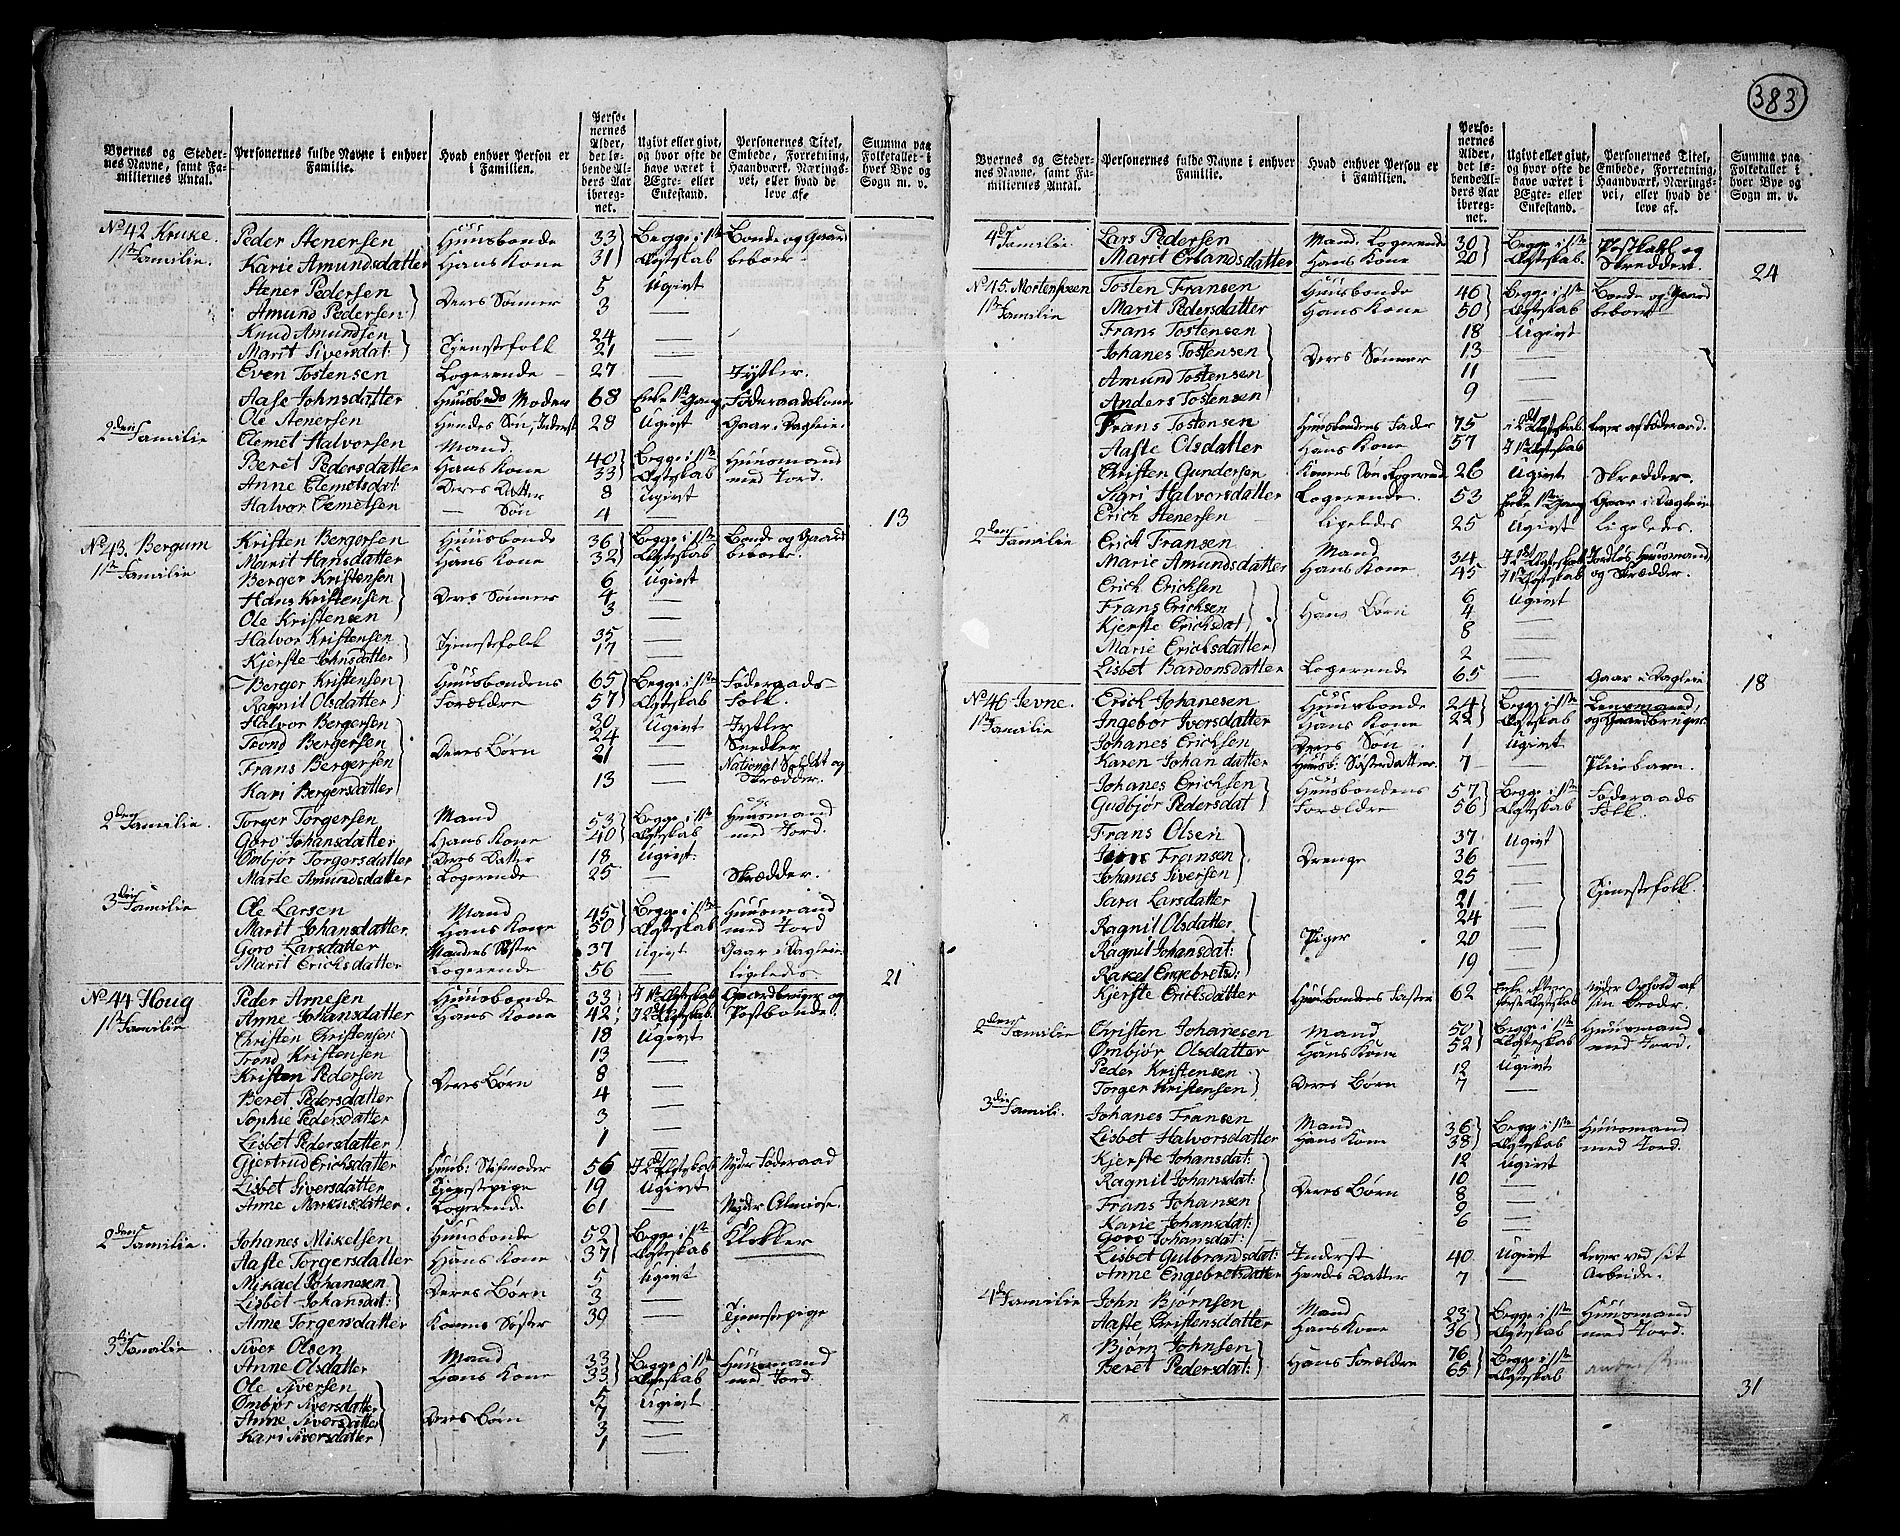 383
Byernes og Stedernes Navne, samt Familiernes Antal. Personernes fulde Navne i enhver Familie. Hvad enhver Person er i Familien. Personernes Alder, det løbende Alders Aar iberegnet. Ugivt eller givt, og hvor ofte de have været i Ægte- eller Enkestand. Personernes Titel, Embede, Forretning, Haandværk, Næringsvei, eller hvad de leve af. Summa paa Folketallet i hver Bye og Sogn m. v.
No 42 Kruke. 1ste Familie. Peder Stenersen Huusbonde 33 Begge i 1ste Bonde og Gaard
Karie Amundsdatter Hans Kone 31 Ægteskab beboer
Stener Pedersen Deres Sønner 5 Ugivt
Amund Pedersen 3 —
Knud Amundsen Tjenestefolk 24 —
Marit Siversdat: 21 —
Even Tostensen Logerende 27 —
Aase Johnsdatter Huusbonds Moder 68 Enke 1ste Gang Føderaadskone
Ole Stenersen Hendes Søn, Inderst 28 Ugivt Gaar i Dagleie
2den Familie Clemet Halvorsen Mand 40 Begge i 1ste Huusmand
Beret Pedersdatter Hans Kone 33 Ægteskab med Jord.
Anne Clemetsdat: Deres Datter 8 Ugivt
Halvor Clemetsen — Søn 4 — 13
No 43. Bergum 1ste Familie Kristen Bergersen Huusbonde 36 Begge i 1ste Bonde og Gaard
Marit Hansdatter Hans Kone 32 Ægteskab beboer.
Berger Kristensen Deres Sønner 6 Ugivt
Hans Kristensen 4 —
Ole Kristensen 3 —
Halvor Kristensen Tjenestefolk 35 —
Kjerste Johnsdatter 17 —
Berger Kristensen Huusbondens 65 Begge i 1ste Føderaads-
Ragnil Olsdatter Forældre 57 Ægteskab Folk.
Halvor Bergersen Deres Børn 30 Ugivt
Trond Bergersen 24 — Snedker
Frans Bergersen 21 — National Soldat og
Kari Bergersdatter 13 — Skrædder.
2den Familie. Torger Torgersen Mand 53 Begge i 1ste Huusmand
Goro Johansdatter Hans Kone 40 Ægteskab med Jord.
Ombjør Torgersdatter Deres Datter 18 Ugivt.
Marte Amundsdatter Logerende 25 — Skrædder.
3die Familie Ole Larsen Mand 45 Begge i 1ste Huusmand
Marit Johansdatter Hans Kone 50 Ægteskab med Jord
Goro Larsdatter Mandens Søster 37 Ugivt Gaar i Dagleie
Marit Ericksdatter Logerende 56 — Ligeledes 21
No 44 Houg 1ste Familie Peder Arnesen Huusbonde 33 I 1ste Ægteskab Gaardbruger og
Anne Johansdatter Hans Kone 42 I 2det Ægteskab Postbonde.
Christen Christensen Deres Børn 18 Ugivt
Trond Kristensen 13 —
Kristen Pedersen 8 —
Beret Pedersdatter 4 —
Sophie Pedersdatter 3 —
Lisbet Pedersdatter 1 —
Gjertrud Ericksdatter Huusb: Stifmoder 56 I 2det Ægteskab Nyder Føderaad
Lisbet Siversdatter Tjenestepige 19 Ugivt
Anne Markusdatter. Logerend. 61 — Nyder Almisse.
2den Familie. Johanes Mikelsen Huusbonde 52 Begge i 1ste Klokker
Aaste Torgersdatter Hans Kone 37 Ægteskab
Mikael Johanesen Deres Børn 5 Ugivt
Lisbet Johansdat: 3 —
Anne Torgersdatter Konens Søster 39 — Tjenestepige
3die Familie Siver Olsen Mand 33 Begge i 1ste Huusmand
Anne Olsdatter Hans Kone 33 Ægteskab med Jord.
Ole Siversen Deres Børn 5 Ugivt
Ombjør Siversdatter 7 —
Anne Siversdatter 3 —
Kari Siversdatter 1 —
Byernes og Stedernes Navne, samt Familiernes Antal. Personernes fulde Navne i enhver Familie. Hvad enhver Person er i Familien. Personernes Alder, det løbende Alders Aar iberegnet. Ugivt eller givt, og hvor ofte de have været i Ægte- eller Enkestand. Personernes Titel, Embede, Forretning, Haandværk, Næringsvei, eller hvad de leve af. Summa paa Folketallet i hver Bye og Sogn m. v.
4de Familie Lars Pedersen Mand. Logerende 30 Begge i 1ste Postkarl og
Marit Erlandsdatter Hans Kone 20 Ægteskab. Skredder. 24
1ste Familie Tosten Fransen Huusbonde 46 Begge i 1ste Bonde og Gaard
Marit Pedersdatter Hans Kone 50 Ægteskab beboer
Frans Tostensen Deres Sønner 18 Ugivt
Johanes Tostensen 13 —
Amund Tostensen 11 —
Anders Tostensen 9 —
Frans Tostensen Huusbondens Fader 75 i 2det Ægteskab. Lever af Føderaad.
Aaste Olsdatter Hans Kone 57 I 1ste Ægteskab
Christen Gundersen Konens Søn Logerend 26 Ugivt Skredder.
Sigri Halvorsdatter Logerende. 53 Enke 1ste Gang Gaar i Dagleie
Erick Stenersen — ligeledes 25 Ugivt ligeledes.
2den Familie Erick Fransen Mand 34 Jordløs Huusmand
Marie Amundsdatter Hans Kone 45 I 1ste Ægteskab og Skrædder.
Erick Ericksen Hans Børn 6 Ugivt
Frans Ericksen 4 —
Kjerste Ericksdat 8 —
Marie Ericksdatter 2 —
Lisbet Bardonsdatter Logerende 65 — Gaar i Dagleie 18
No 46 Jevne. 1ste Familie Erick Johanesen Huusbonde 24 Begge i 1ste Lensmand,
Ingebor Iversdatter Hans Kone 22 Ægteskab og Gaardbruger.
Johanes Ericksen Deres Søn 1 Ugivt
Karen Johandatter Huusb: Søsterdatter 7 — Pleiebarn.
Johanes Ericksen Huusbondens 57 Begge i 1ste Føderaads
Gudbjør Pedersdat Forældre 56 Ægteskab Folk.
Frans Olsen Drenge 37 Ugivt Tjenestefolk.
Fransen 36 —
Johanes Siversen 25 —
Sara Larsdatter Piger 21 —
Ragnil Olsdatter 24 —
Ragnil Johansdat: 20 —
Rakel Engebretsd: 19 —
Kjerste Ericksdatter Huusbondens Faster 62 Enke efter første Ægteskab nyder Ophold af sin Broder.
2den Familie Christen Johanesen Mand 50 Begge i 1ste Huusmand
Ombjør Olsdatter Hans Kone 52 Ægteskab med Jord.
Peder Kristensen Deres Børn 12 Ugivt
Torger Kristensen 7 —
3die Famili. Johanes Fransen Mand 36 Begge i 1ste Huusmand
Lisbet Halvorsdatter Hans Kone 38 Ægteskab med Jord.
Kjerste Johansdat: Deres Børn 12 Ugivt
Ragnil Johansdat: 10 —
Frans Johansen 8 —
Karie Johansdat: 2 —
Goro Johansdat: 6 —
Lisbet Gulbrandsdat: Inderst 40 Ugivt Lever ved sit
Anne Engebretsdatter Hendes Datter 7 — Arbeide.
4de Familie John Bjørnsen Mand 23 Begge i 1ste Huusmand
Aaste Christensdatter Hans Kone 36 Ægteskab med Jord.
Bjørn Johnsen Hans Forældre 76 Begge i 1ste
Beret Pedersdat: 65 Ægteskab 31